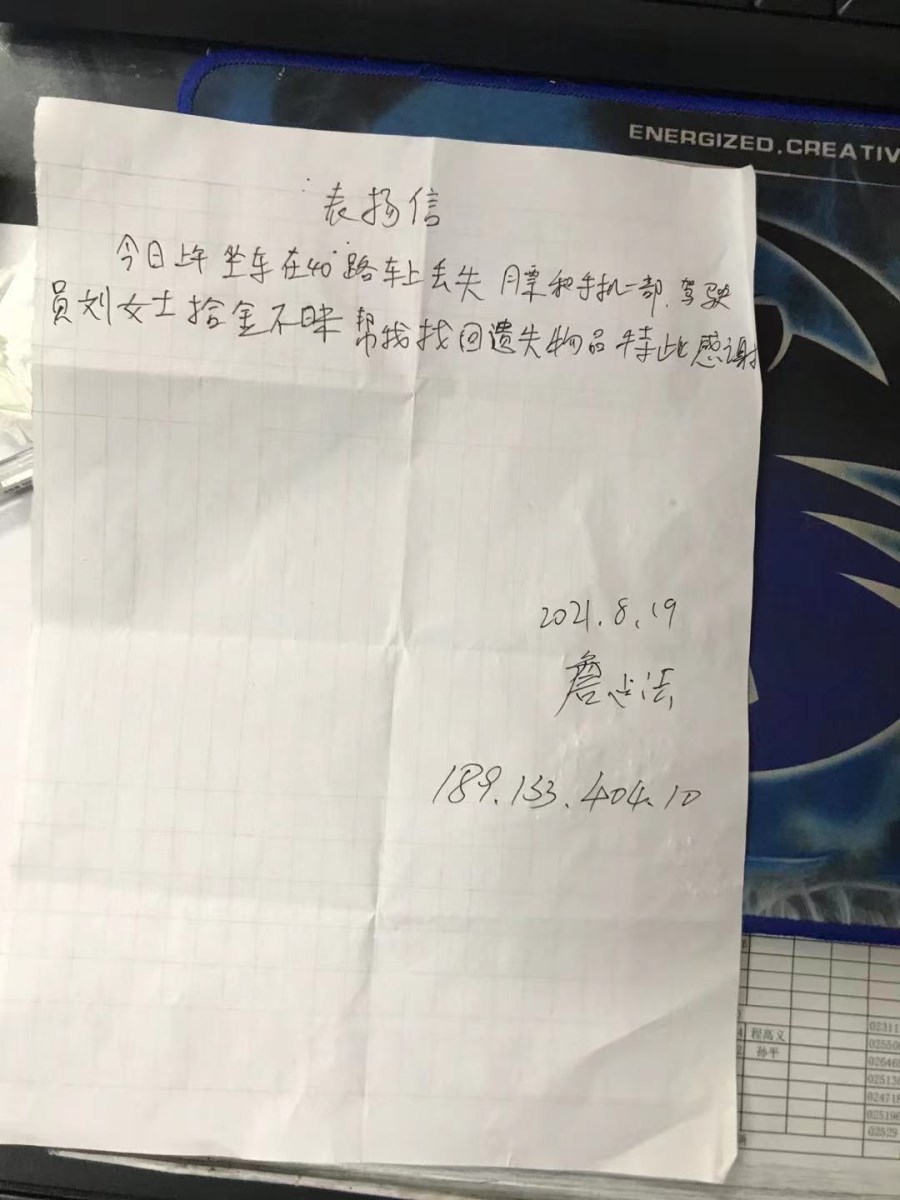 ENERGIZED.CREATIV
表扬信
今日上午坐车在40路车上丢失月票和手机二部.驾驶
员刘女士拾金不昧帮我找回遗失物品特此感谢
2021.8.19
詹志法
189.133.404.10
程高义
孙平
02311
02550
02646
02513
02471
02519
02529